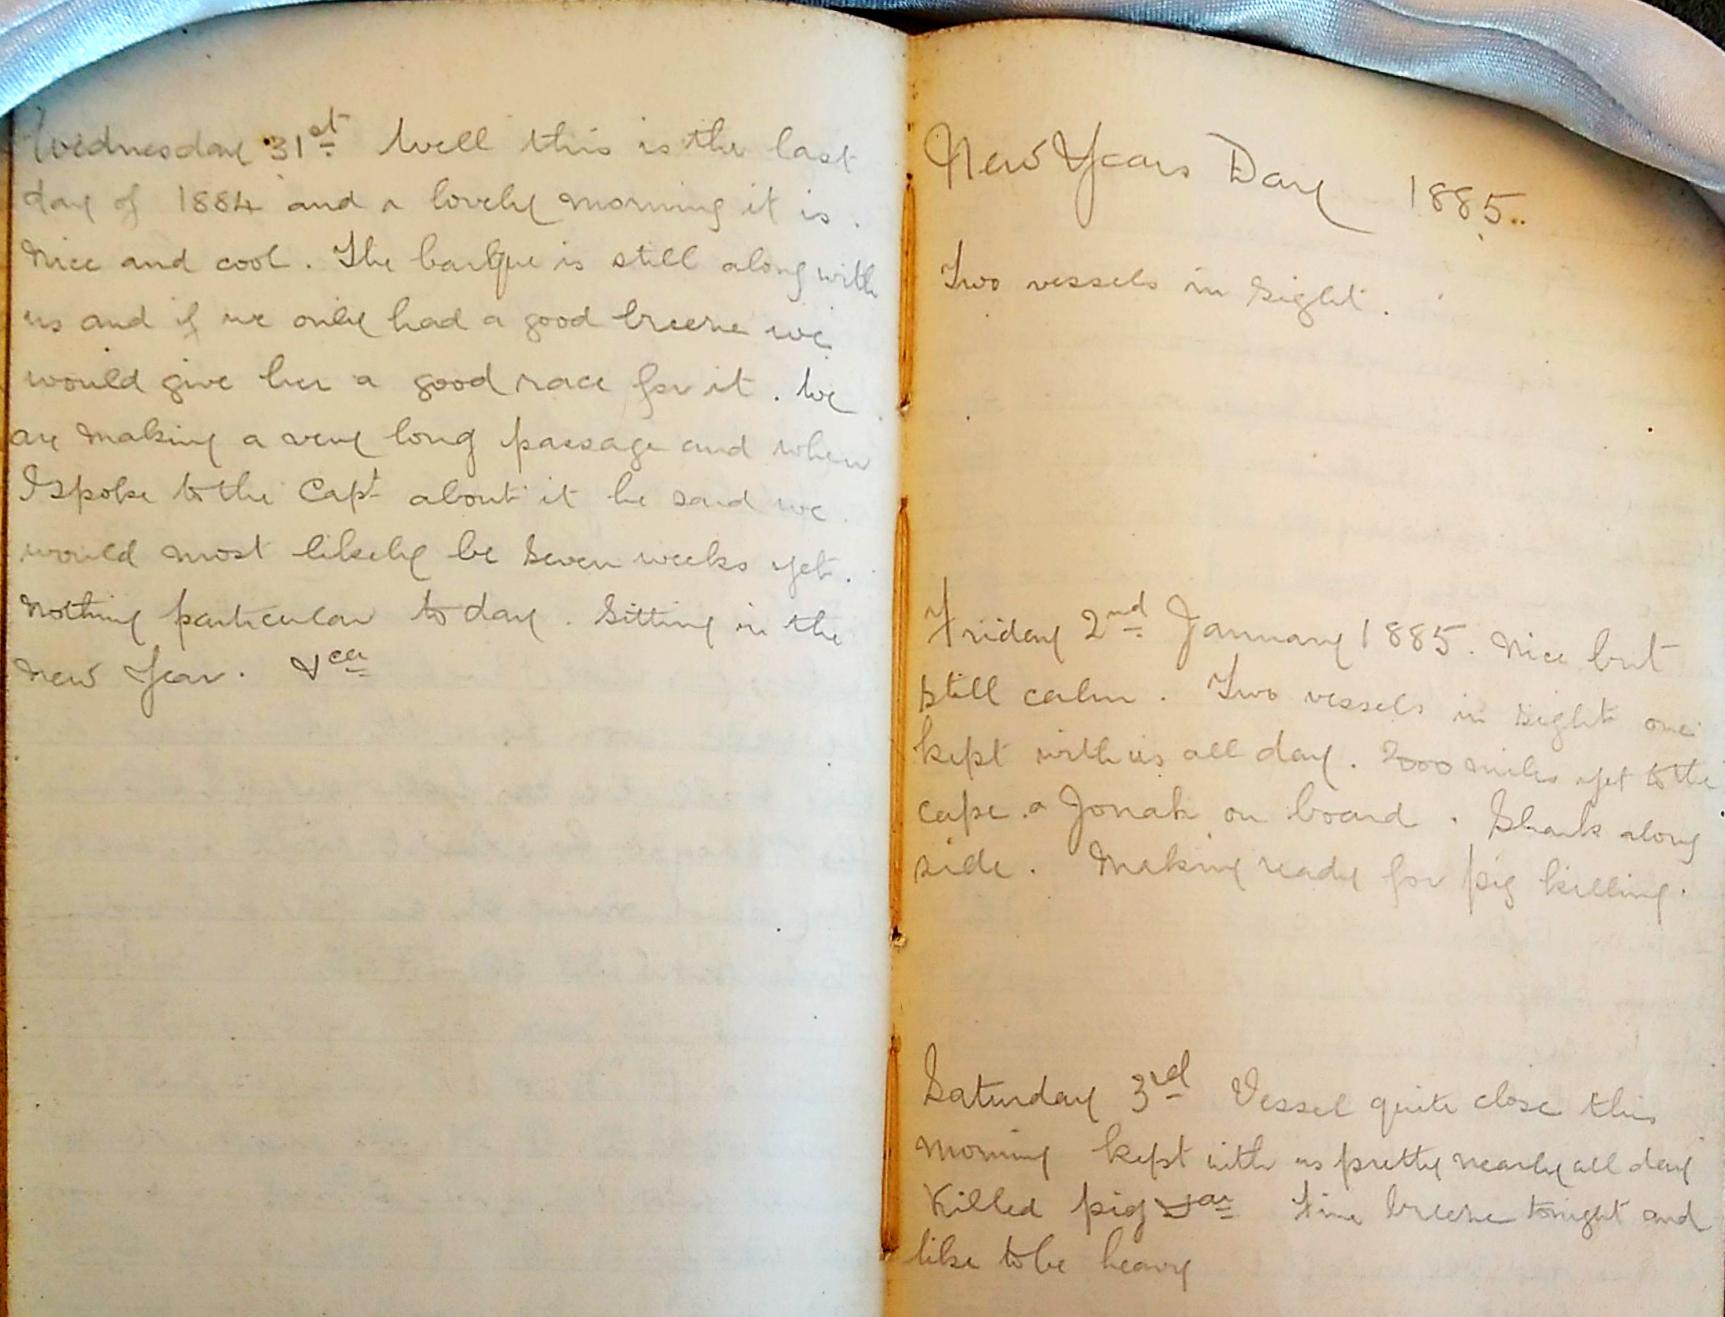 Wednesday 31st Well this is the last
day of 1884 and a lovely morning it is.
Nice and cool. The barque is still along with
us and if we only had a good breeze we
would give her a good race for it. We
are making a very long passage and when
I spoke to the Capt about it he said we
would most likely be seven weeks yet.
Nothing particular to day. Sitting in the
new Year. &ca
New Years Day 1885..
Two vessels in sight.
Friday 2nd January 1885. Nice but
still calm. Two vessels in sight one
kept with us all day. 2000 miles yet to the
cape. a Jonah on board. Shark along
side. Making ready for pig killing.
Saturday 3rd Vessel quite close this
morning kept with us pretty nearly all day
Killed pig &ca Fine breeze tonight and
like to be heavy